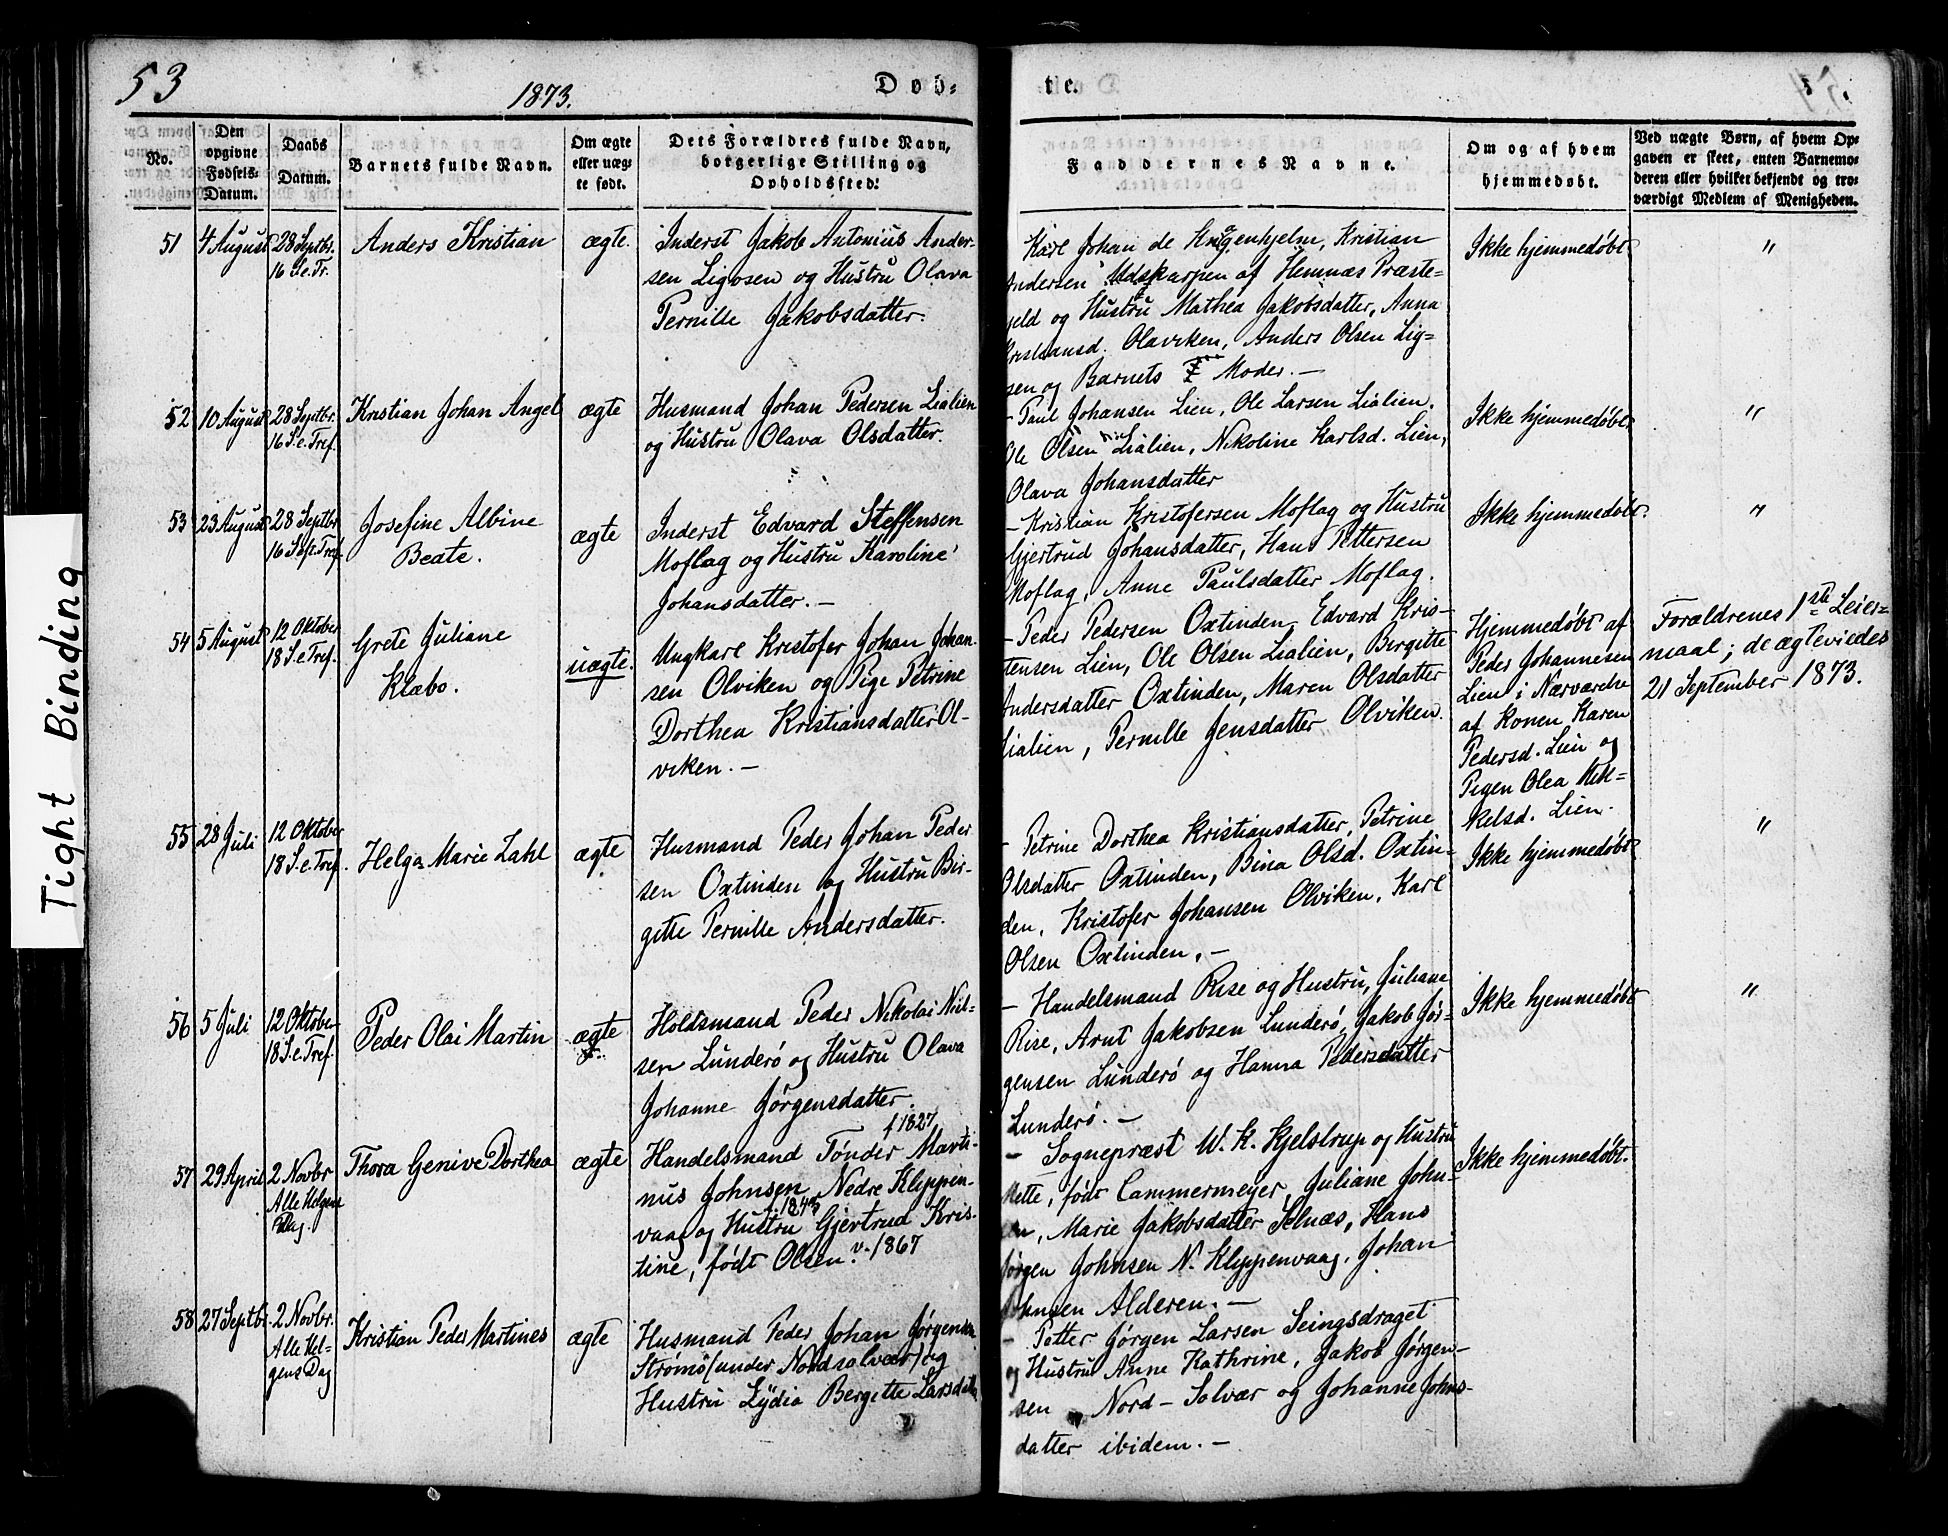 53
1873.
Døb-
te.
No.
Den opgivne Fødsels-Datum.
Daabs Datum.
Barnets fulde Navn.
Om ægte eller uægte født.
Dets Forældres fulde Navn, borgerlige Stilling og Opholdssted:
Faddernes Navne.
Om og af hvem hjemmedøbt.
Ved uægte Børn, af hvem Opgaven er skeet, enten Barnemoderen eller hvilket bekjendt og troværdigt Medlem af Menigheden.
51 4 August 28 Septbr. 16 S.e.Tr.
Anders Kristian
ægte
Inderst Jakob Antonius Ander-
sen Ligosen og Hustru Olava
Pernille Jakobsdatter.
Karl Johan de Knagenhjelm, Kristian
Andersen Udskarpen af Hemnæs Præste-
gjeld og Hustru Mathea Jakobsdatter, Anna
Kristiansd. Olaviken, Anders Olsen Lig-
sen og Barnets Moder. -
Ikke hjemmedøbt
"
52 10 August 28 Septbr. 16 S.e.Tref.
Kristian Johan Angel
ægte
Husmand Johan Pedersen Lialien
og Hustru Olava Olsdatter.
- Paul Johansen Lien, Ole Larsen Lialien.
Ole Olsen Lialien, Nikoline Karlsd. Lien,
Olava Johansdatter
Ikke hjemmedøbt.
"
53 23 August 28 Septbr 16 S.e.p.Tref.
Josefine Albine
Beate.
ægte
Inderst Edvard Steffensen
Moflag og Hustru Karoline
Johansdatter. -
- Kristian Kristofersen Moflag og Hustru
Gjertrud Johansdatter, Hans Pettersen
Moflag, Anne Paulsdatter Moflag.
Ikke hjemmedøbt.
"
54 5 August 12 Oktober 18 S.e.Tref.
Grete Juliane
Klæbo.
uægte.
Ungkarl Kristofer Johan Johan-
sen Olviken og Pige Petrine
Dorthea Kristiansdatter Ol-
viken. -
- Peder Pedersen Oxtinden, Edvard Kris-
tensen Lien, Ole Olsen Lialien, Birgitte
Andersdatter Oxtinden, Maren Olsdatter
Lialien, Pernille Jensdatter Olviken.
Hjemmedøbt af
Peder Johannesen
Lien i Nærværelse
af Konen Karen
Pedersd. Lien og
Pigen Olea Mik-
kelsd. Lien.
Forældrenes 1ste Leier-
maal; de ægteviedes
21 September 1873.
55 28 Juli 12 Oktober 18 S.e.Tref.
Helga Marie Zahl
ægte
Husmand Peder Johan Peder
sen Oxtinden og Hustru Bir-
gitte Pernille Andersdatter.
- Petrine Dorthea Kristiansdatter, Petrine
Olsdatter Oxtinden, Bina Olsd. Oxtin-
den, Kristofer Johansen Olviken, Karl
Olsen Oxtinden, -
Ikke hjemmedøbt
"
56 5 Juli 12 Oktober 18 S.e.Tref.
Peder Olai Martin
ægte
Holdsmand Peder Nikolai Niel-
sen Lunderö og Hustru Olava
Johanne Jørgensdatter.
- Handelsmand Rise og Hustru, Juliane
Rise, Arnt Jakobsen Lunderö, Jakob Jør-
gensen Lunderö og Hanna Pedersdatter
Lunderö. -
Ikke hjemmedøbt
"
57 29 April 2 Novbr Alle Helgens Dag.
Thora Genive Dorthea
ægte
f 1827
Handelsmand Tønder Marti-
nus Johnsen Nedre Kleppen-
f. 1843
vaag og Hustru Gjertrud Kris-
tine, født Olsen. v. 1867
- Sognepræst W. K. Kjelstrup og Hustru
Mette, født Cammermeyer, Juliane John-
sen, Marie Jakobsdatter Selnæs, Hans
Jørgen Johnsen N. Kleppenvaag, Johan
Johnsen Alderen. -
Ikke hjemmedøbt.
58 27 Septbr. 2 Novbr. Alle Hel-gens Dag
Kristian Peder Martines
ægte
Husmand Peder Johan Jørgensen
Strømö (under Nordsolvær) og
Hustru Lydia Bergitte Larsdatter
- Petter Jørgen Larsen Seingsdraget
og Hustru Anne Kathrine, Jakob Jørgen-
sen Nord-Solvær og Johanne Johns-
datter ibidem. -
Tight Binding